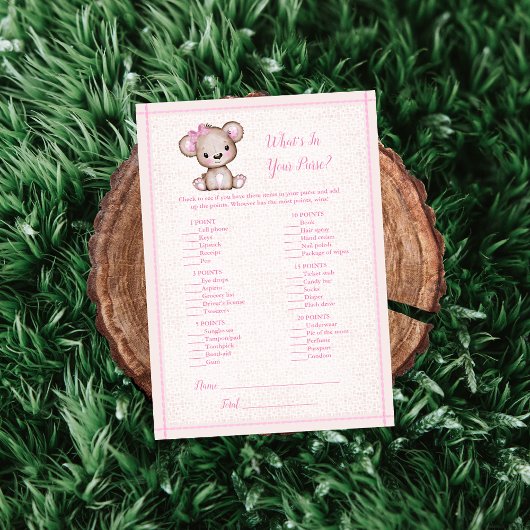 What's In
Your Purse?
Check to see if you have these items in your purse and add
up the points. Whoever has the most points, wins!
1 POINT
Cell phone
Keys
Lipstick
Receipt
Pen
3 POINTS
Eye drops
Aspirin
Grocery list
Driver's license
Tweezers
5 POINTS
Sunglasses
Tampon/pad
Toothpick
Band-aid
Gum
10 POINTS
Book
Hair spray
Hand cream
Nail polish
Package of wipes
15 POINTS
Ticket stub
Candy bar
Socks
Diaper
Flash drive
20 POINTS
Underwear
Pic of the mom
Perfume
Passport
Condom
Name
Total